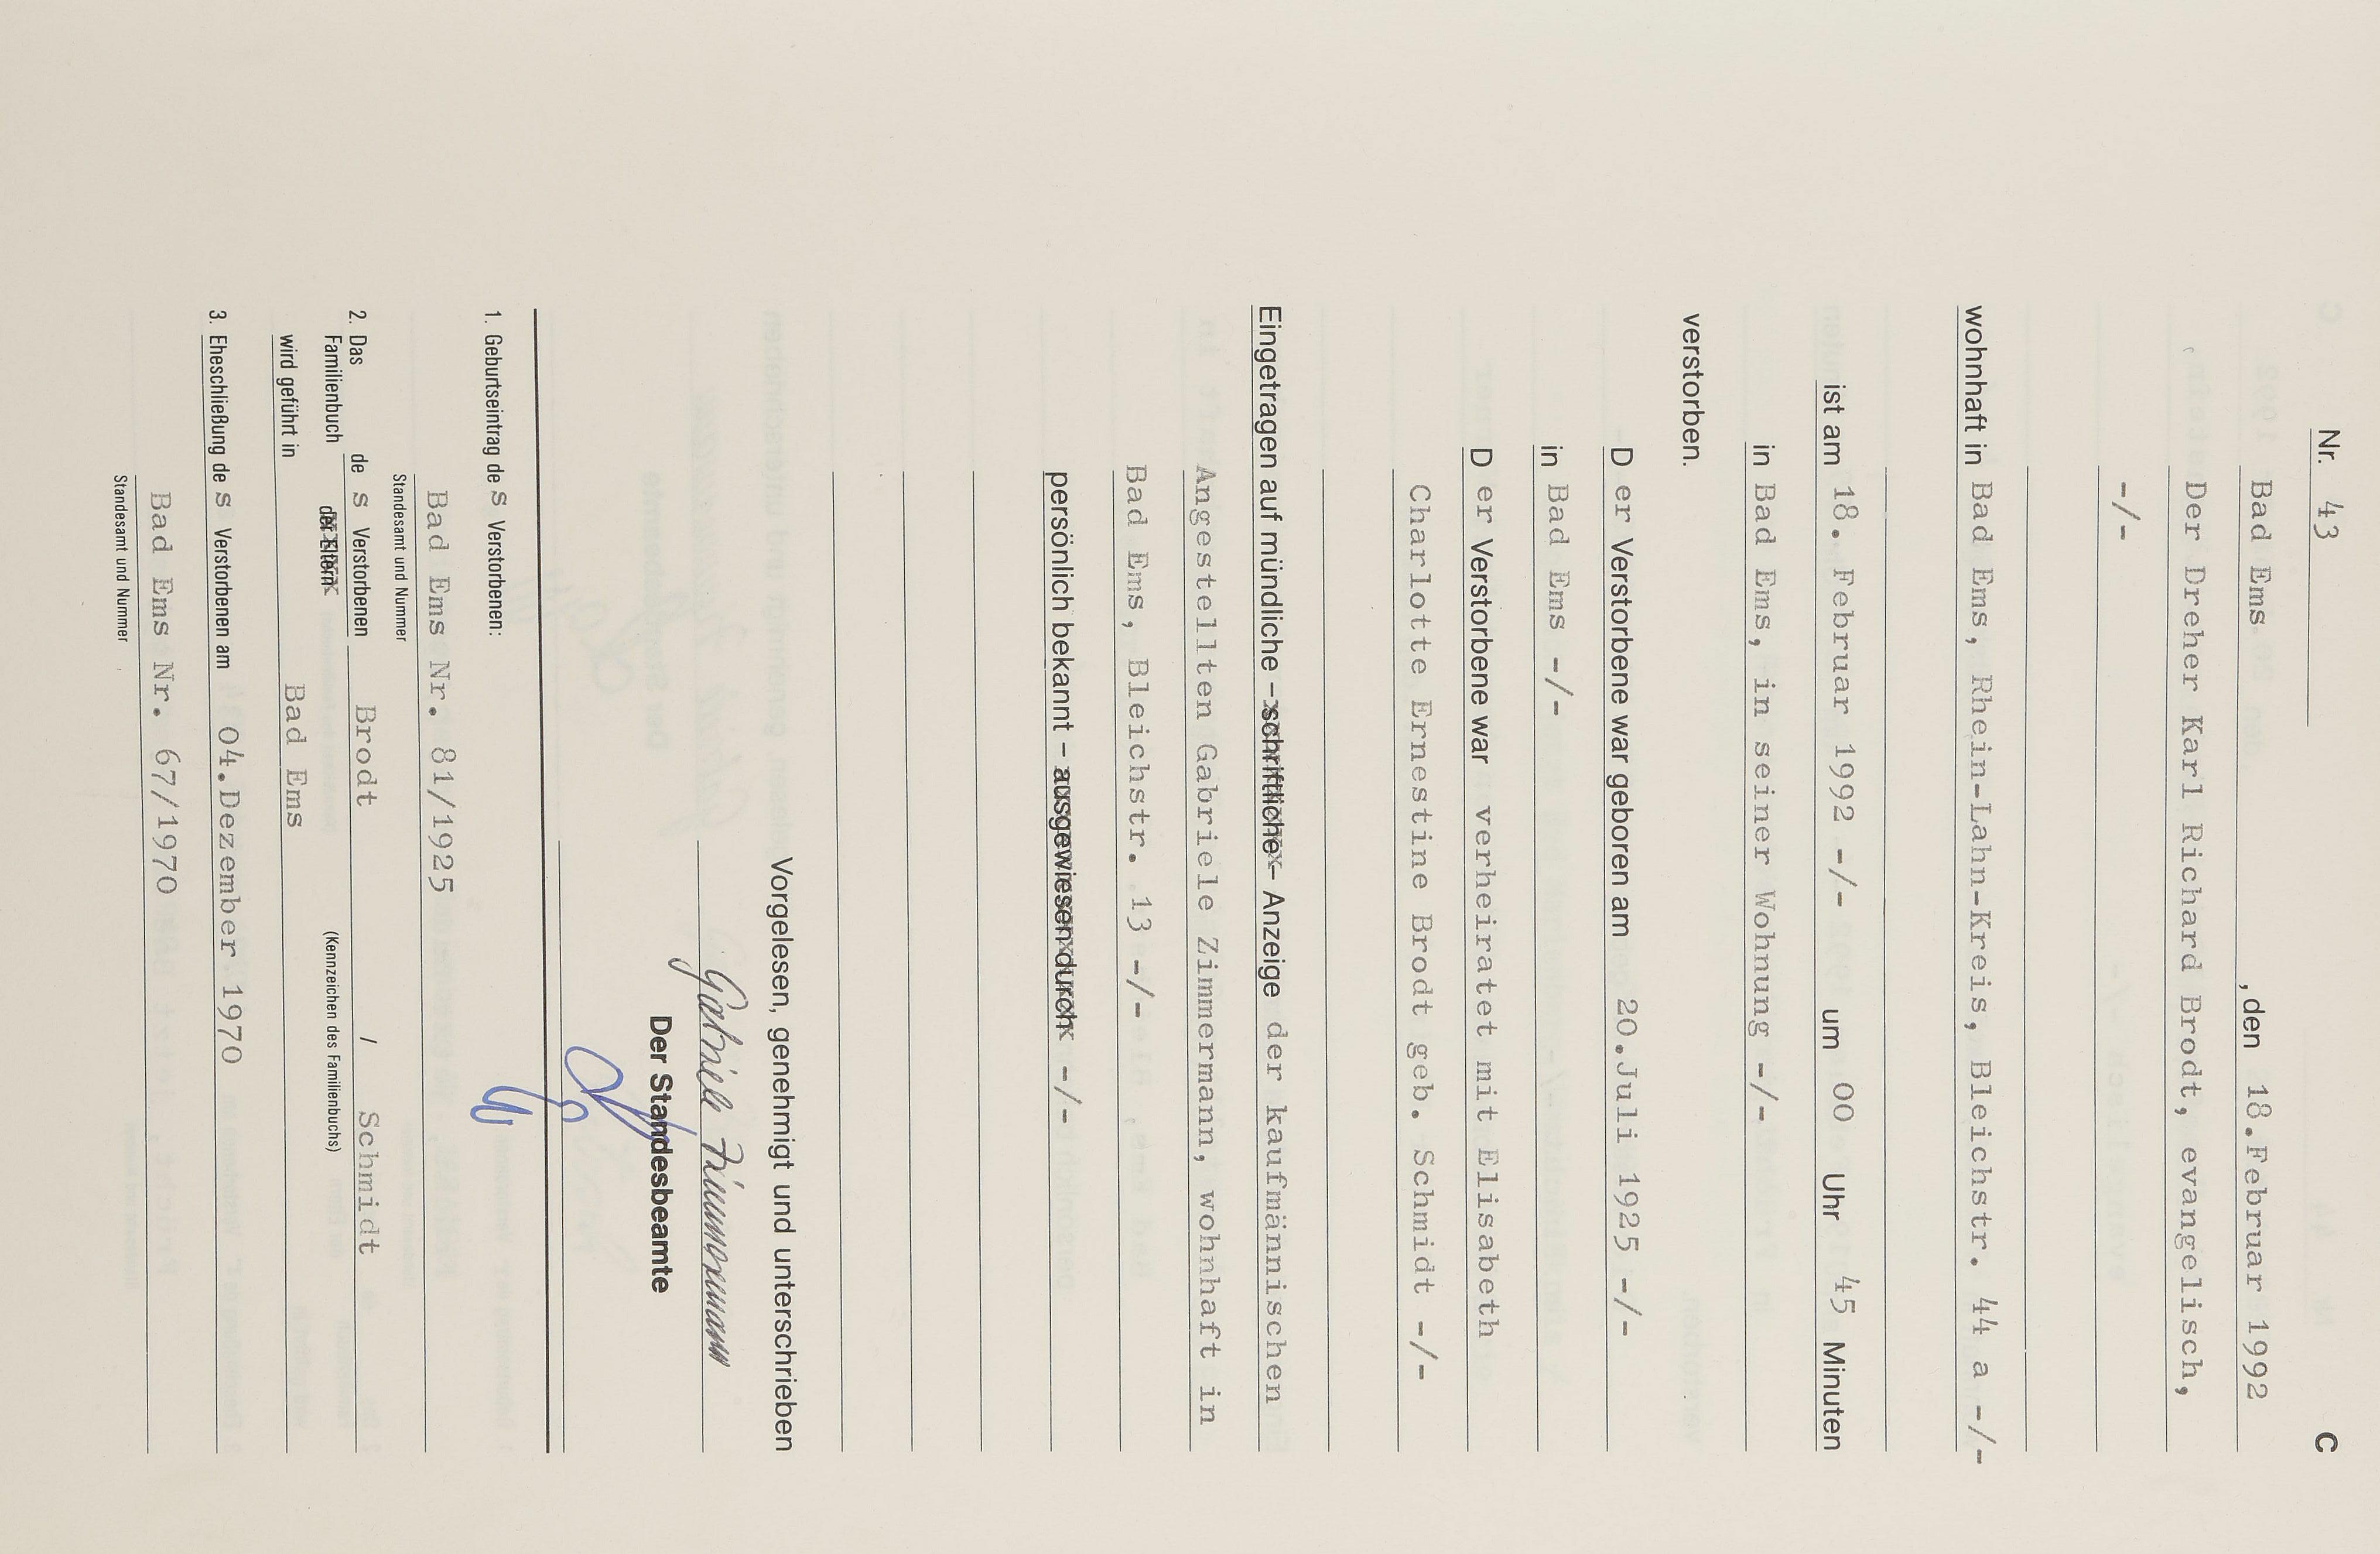 Nr. 43 C
Bad Ems , den 18.Februar 1992
Der Dreher Karl Richard Brodt, evangelisch,
-/-
wohnhaft in Bad Ems, Rhein-Lahn-Kreis, Bleichstr. 44 a -/-
ist am 18. Februar 1992 -/- um 00 Uhr 45 Minuten
in Bad Ems, in seiner Wohnung -/-
verstorben.
D er Verstorbene war geboren am 20.Juli 1925 -/-
in Bad Ems -/-
D er Verstorbene war verheiratet mit Elisabeth
Charlotte Ernestine Brodt geb. Schmidt -/-
Eingetragen auf mündliche – schriftliche – Anzeige der kaufmännischen
Angestellten Gabriele Zimmermann, wohnhaft in
Bad Ems, Bleichstr. 13 -/-
persönlich bekannt – ausgewiesen durch -/-
Vorgelesen, genehmigt und unterschrieben
Gabriele Zimmermann
Der Standesbeamte
1. Geburtseintrag de s Verstorbenen:
Bad Ems Nr. 81/1925
Standesamt und Nummer
2. Das Familienbuch de s Verstorbenen Brodt / Schmidt
der Eltern (Kennzeichen des Familienbuchs)
wird geführt in Bad Ems
3. Eheschließung de s Verstorbenen am 04.Dezember 1970
Bad Ems Nr. 67/1970
Standesamt und Nummer